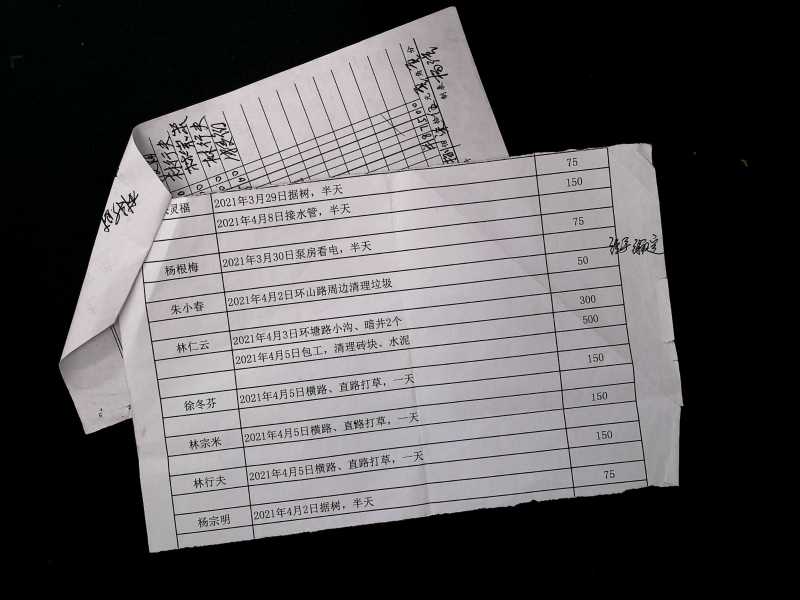 林行夫
林宗米
林行夫
75
灵福 2021年3月29日据树，半天 150
2021年4月8日接水管，半天
75
杨根梅 2021年3月30日泵房看电，半天
50
朱小春 2021年4月2日环山路周边清理垃圾
300
林仁云 2021年4月3日环塘路小沟、暗井2个
500
2021年4月5日包工，清理砖块、水泥
150
徐冬芬 2021年4月5日横路、直路打草，一天
150
林宗米 2021年4月5日横路、直路打草，一天
150
林行夫 2021年4月5日横路、直路打草，一天
75
杨宗明 2021年4月2日据树，半天